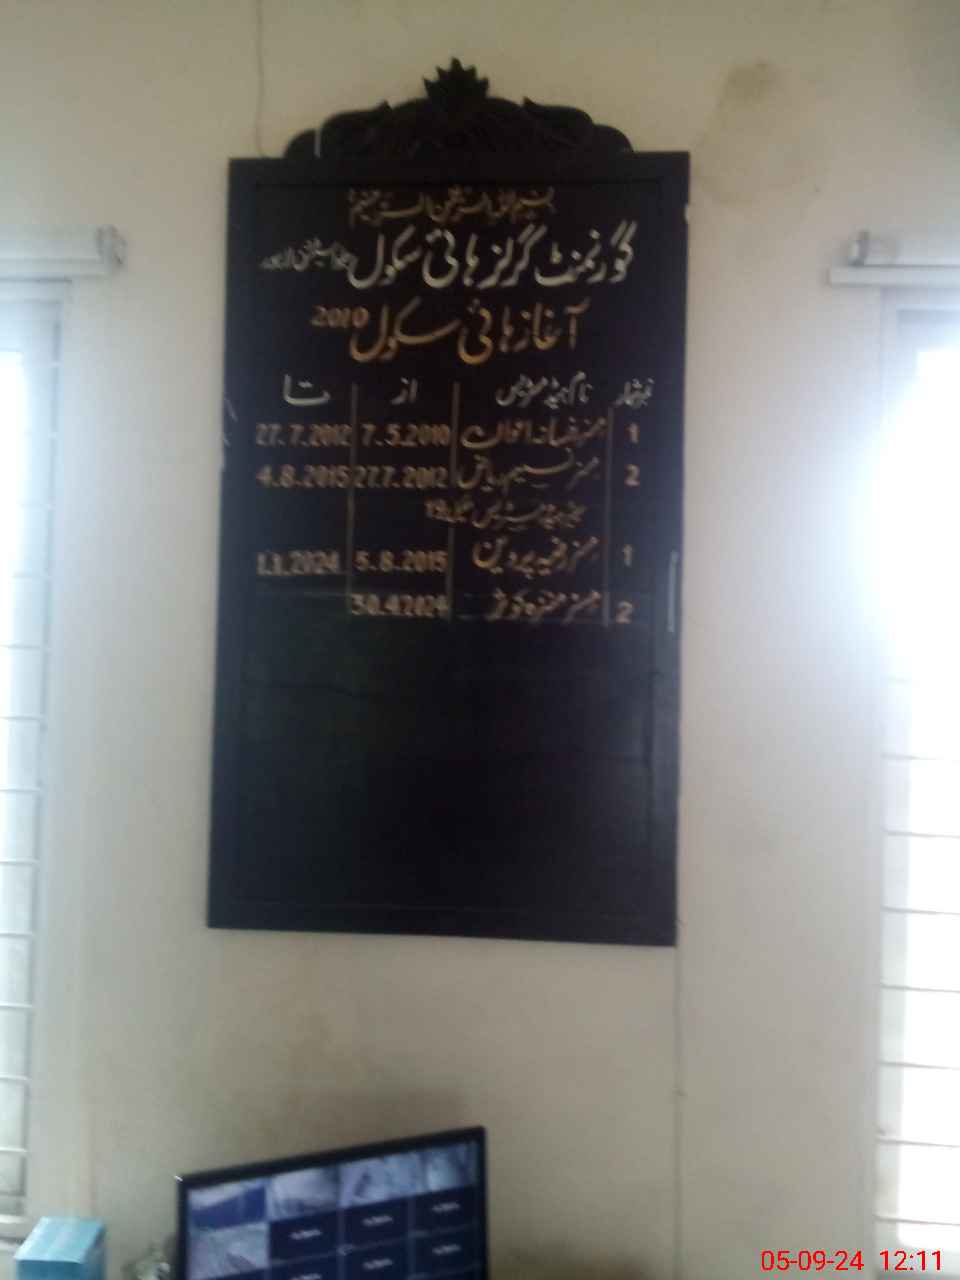 بسم اللہ الرحمن الرحیم
گورنمنٹ گرلز ہائی سکول لاہور
آغاز ہائی سکول 2010
نمبر شمار نام ہیڈ مسٹریس از تا
1 مسز رخسانہ اعوان 7.5.2010 27.7.2012
2 مسز نسیم ریاض 27.7.2012 4.8.2015
سینئر ہیڈ مسٹریس سکیل 19
1 مسز رضیہ پروین 5.8.2015 1.1.2024
2 مسز کوثر 30.4.2024
05-09-24 12:11